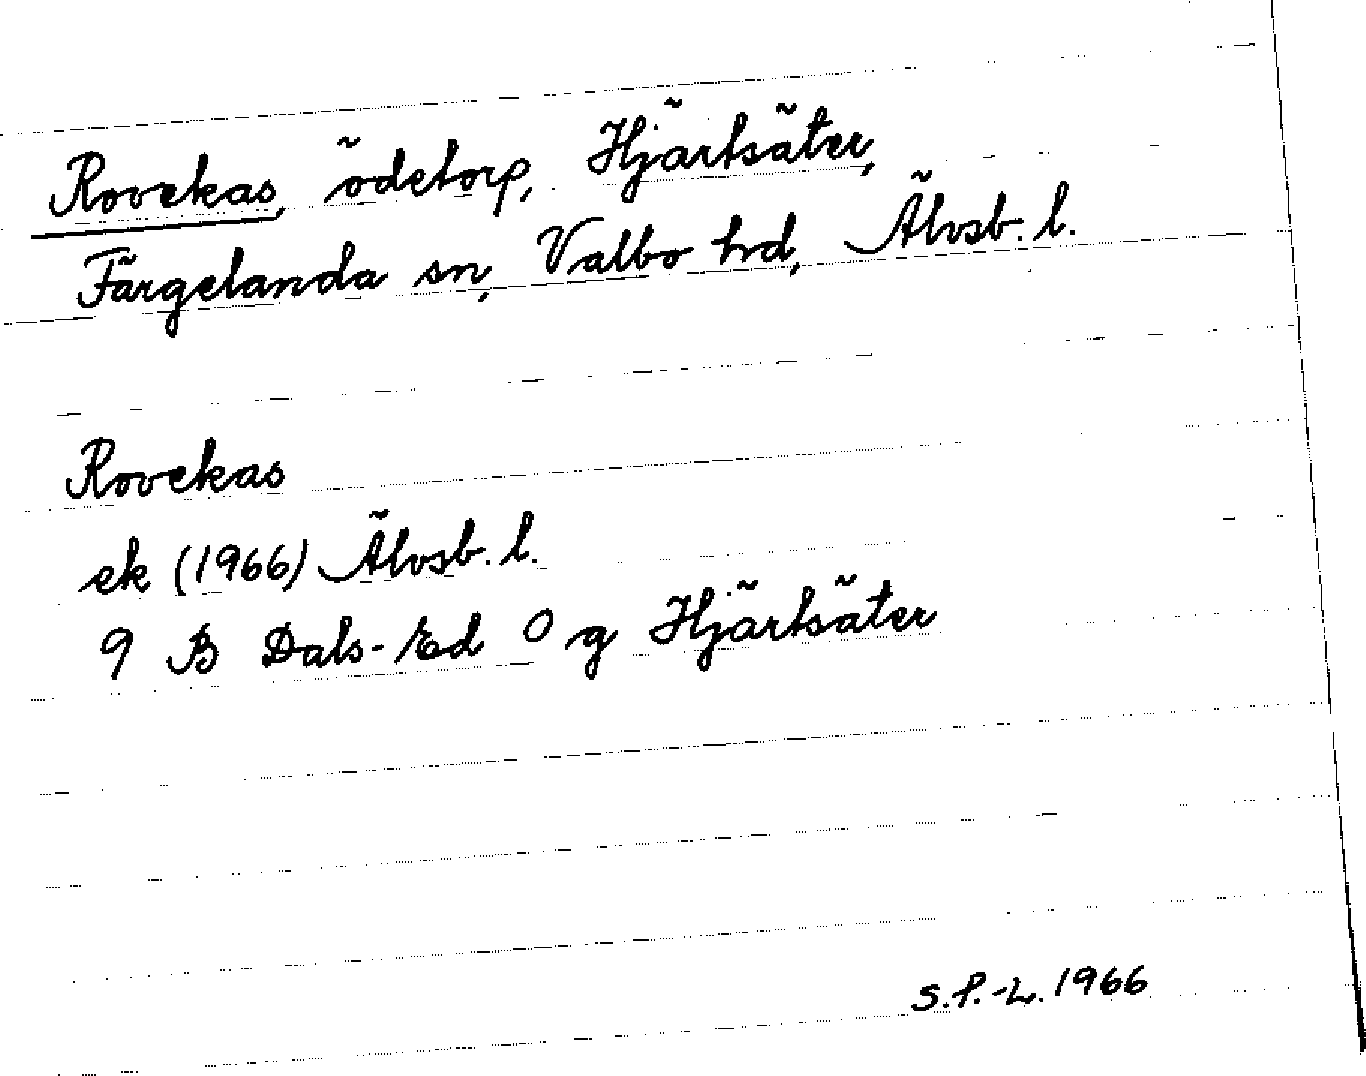 Rovekas, ödetorp, Hjärtsäter,
Färgelanda sn, Valbo hd, Älvsb. l.
Rovekas
ek (1966) Älvsb. l.
9 B Dals-Ed 0 g Hjärtsäter
S.P.-L. 1966